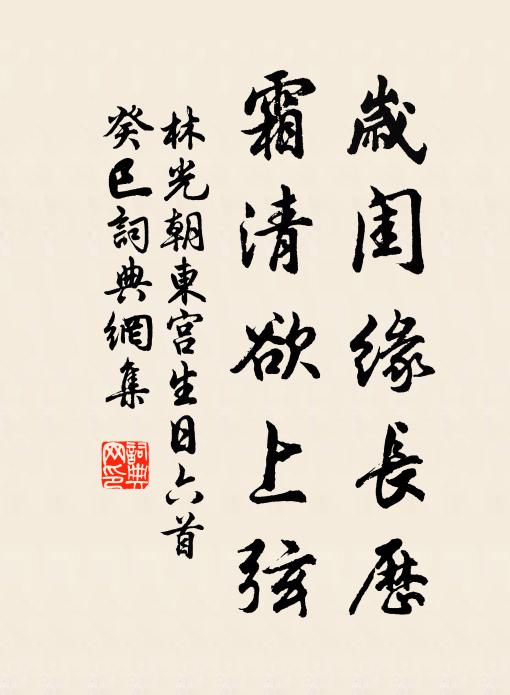 歲閏緣長歷
霜清欲上弦
林光朝東宮生日六首
癸巳詞典網集
詞典網印